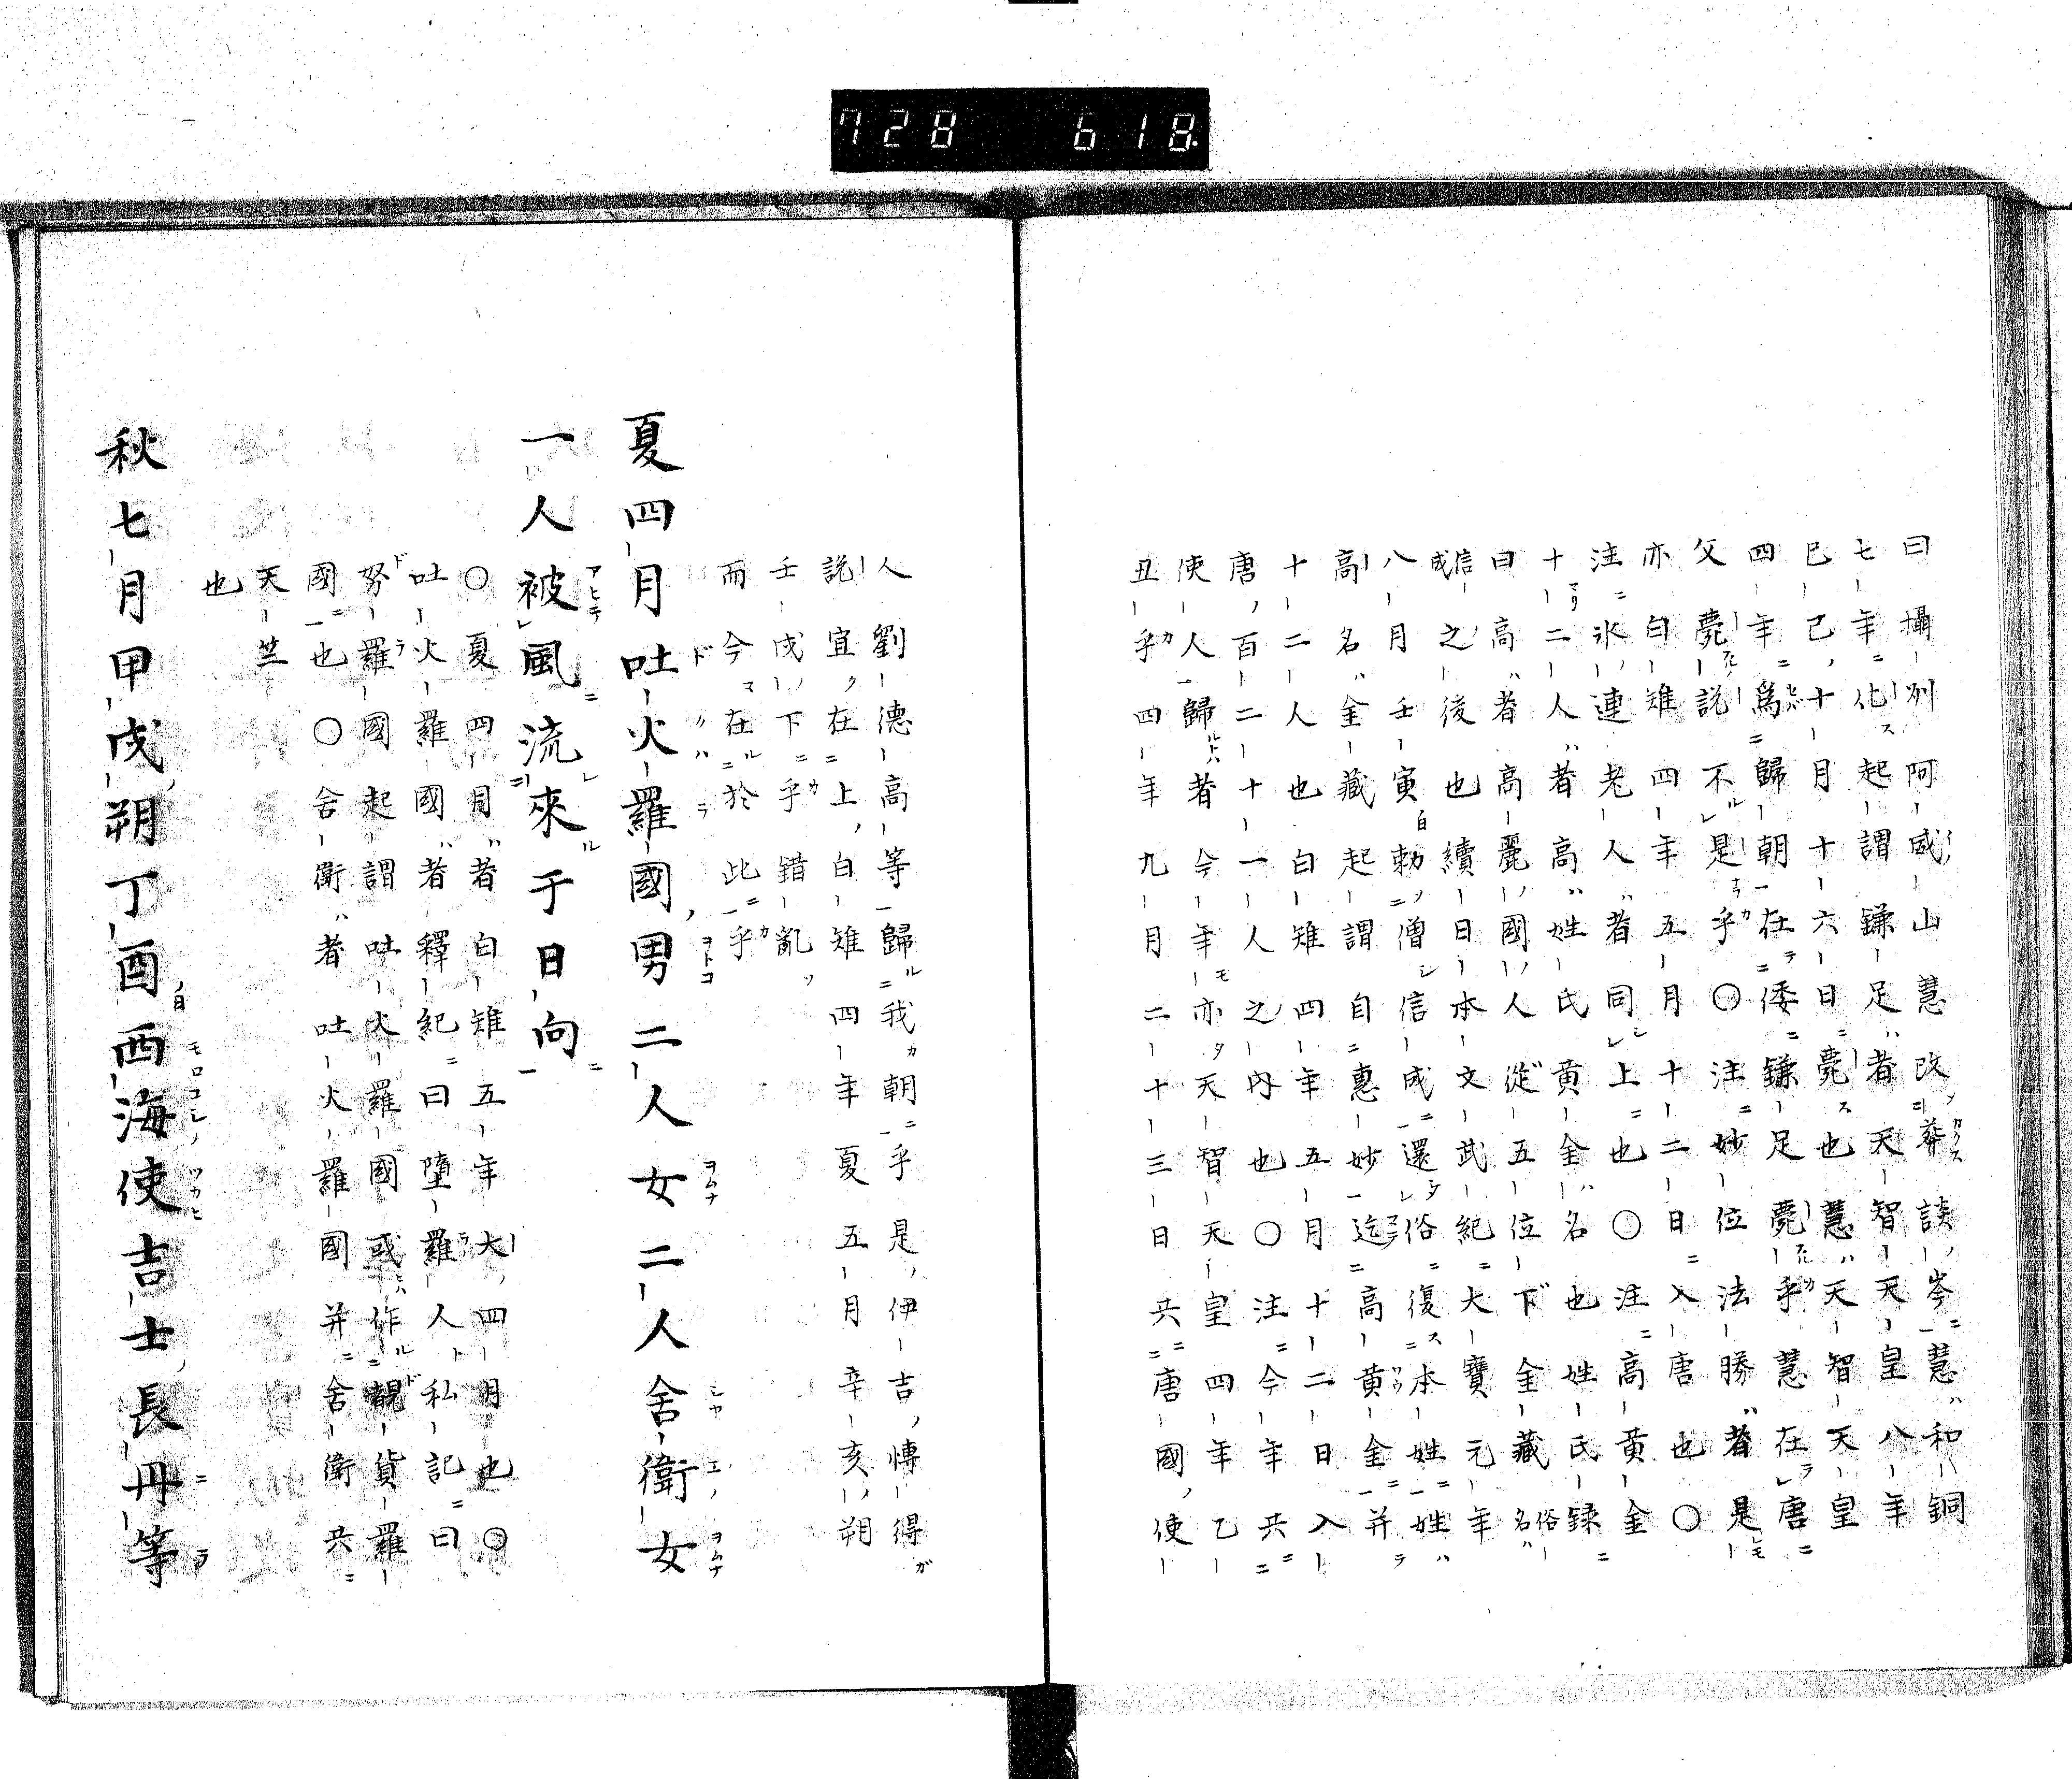 728 618
曰攝列阿威山慧改葬談岑慧和銅
七年化起謂鎌足者天智天皇八年
巳己十月十六日薨也慧天智天皇
四年爲歸朝在倭鎌足薨乎慧在唐
父薨説不是乎〇注妙位法勝者是
亦白雉四年五月十二日入唐也〇
注氷連老人者同上也〇注高黄金
十二人者高姓氏黄金名也姓氏録
曰高者高麗國人從五位下金藏俗名
信成之後也續日本文武紀大寶元年
八月壬寅勅僧信成還俗復本姓姓
高名金藏起謂自惠妙迄高黄金并
十二人也白雉四年五月十二日入
唐百二十一人之内也〇注今年共
使人歸者今年亦天智天皇四年乙
丑乎四年九月二十三日共唐國使
人劉德高等歸我朝乎是伊吉博得
説宜在上白雉四年夏五月辛亥朔
壬戌下乎錯亂
而今在於此乎
夏四月吐火羅國男二人女二人舍衛女
一人被風流來于日向
〇夏四月者白雉五年大四月也〇
吐火羅國者釋紀曰墮羅人私記曰
努羅國起謂吐火羅國或作覩貨羅
國也〇舍衛者吐火羅國并舍衛共
天竺
也
秋七月甲戌朔丁酉西海使吉士長丹等